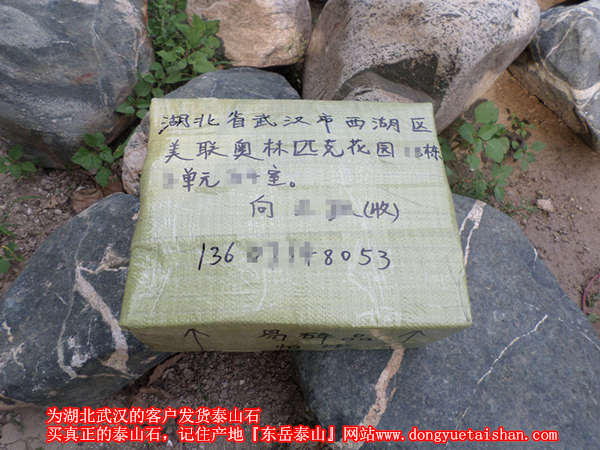 湖北省武汉市西湖区
美联奥林匹克花园栋
单元室。
向(收)
136 8053
易碎品
为湖北武汉的客户发货泰山石
买真正的泰山石，记住产地『东岳泰山』网站www.dongyuetaishan.com